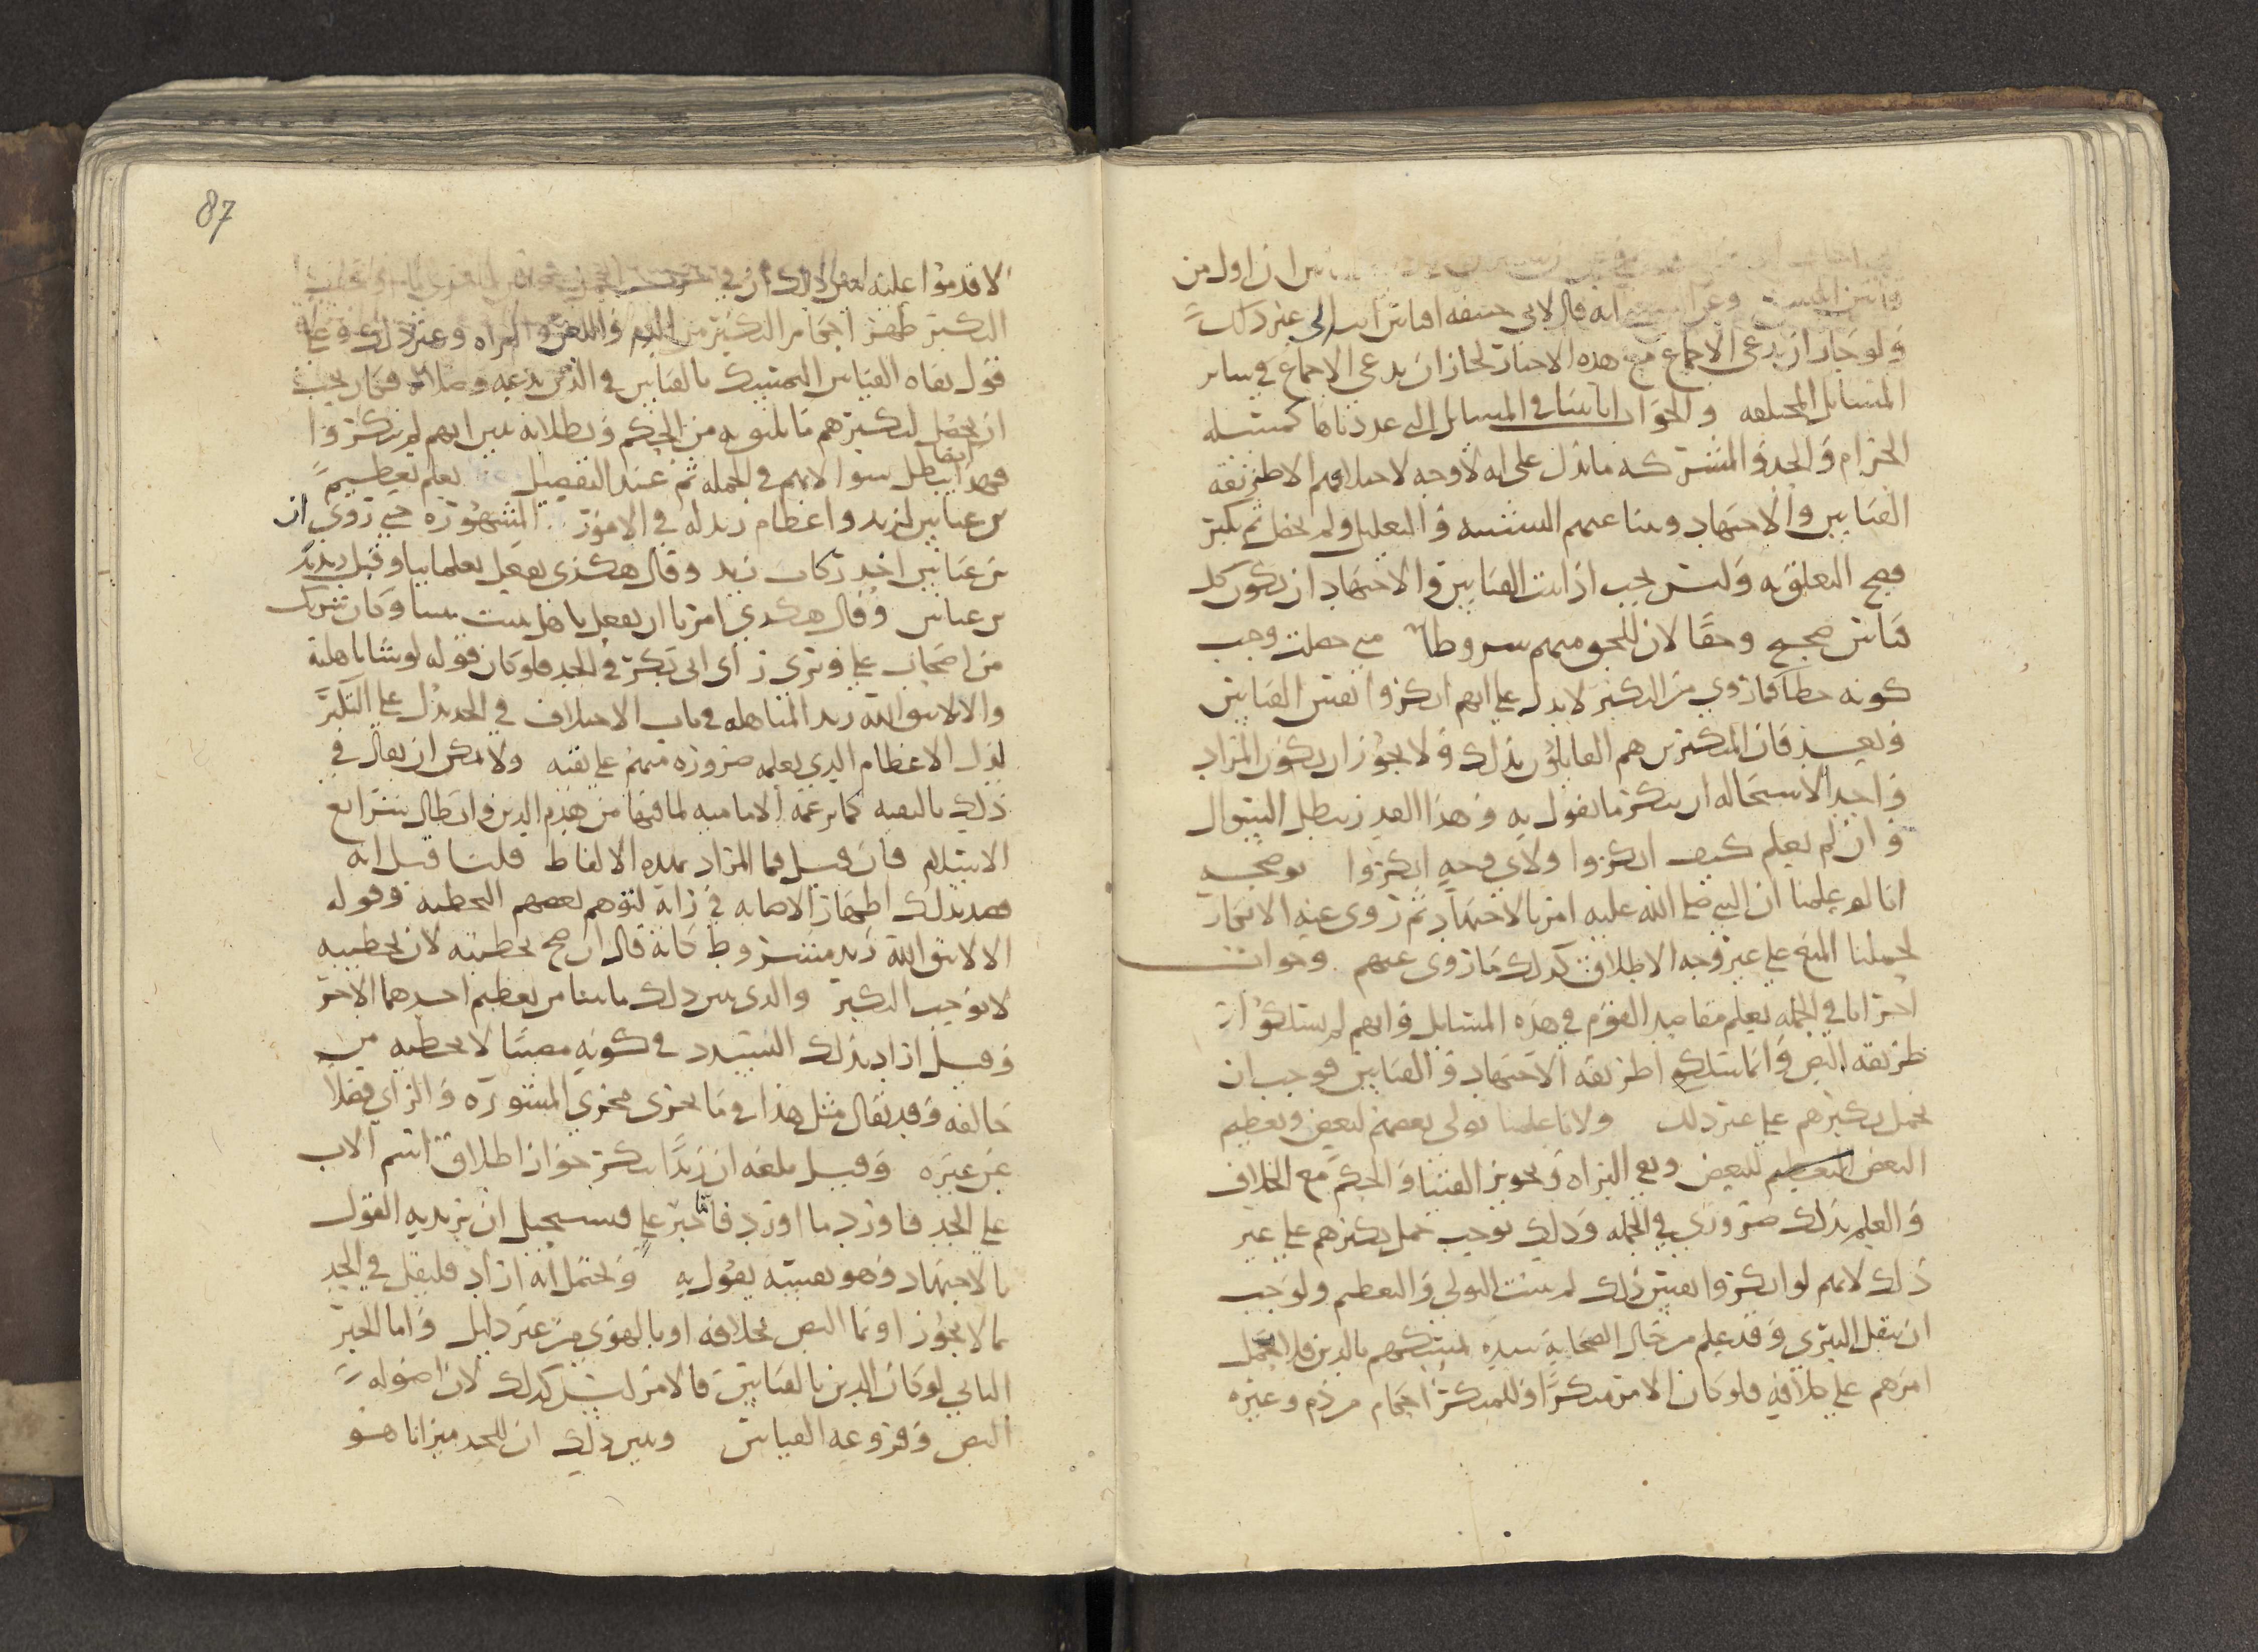 ان اول من
انه قال لابي حنيفه اقياس الى غير ذلك
ولو جاز ان يدعى الاجماع مع هذه الاخبار لجاز ان يدعى الاجماع في ساير
المسايل المختلفه والجواب انا بينا في المسايل التي عددناها كمسئله
الحرام والجد والمشتركه ما يدل على انه لا وجه لاختلافهم الا طريقه
القياس والاجتهاد وبينا عنهم التشبيه والتعليل ولم يحصل ثم نكير
فصح التعلق به وليس يجب اذا ثبت القياس والاجتهاد ان يكون كل
قياس صحيح وحقا لان للجميع منهم شروطا متى حصلت وجب
كونه خطا فما روي من النكير لا يدل على انهم انكروا نفس القياس
وبعد فان المنكرين هم القايلون بذلك ولا يجوز ان يكون المراد
واحد الاستحاله ان ينكر ما يقول به وهذا القدر يبطل السؤال
وان لم يعلم كيف انكروا ولاي وجه انكروا يوضحه
انا لو علمنا ان النبي صلى الله عليه امر بالاجتهاد ثم روى عنه الانكار
لحملنا المنع على غير وجه الاطلاق كذلك ما روى عنهم وجواب
اخر انا في الجمله نعلم مقاصد القوم في هذه المسايل وانهم لم يسلكوا
طريقه النص وانما سلكوا طريقه الاجتهاد والقياس فوجب ان
يحمل نكيرهم على غير ذلك ولانا علمنا تولى بعضهم لبعض وتعظيم
البعض للبعض ونفي البراه وتجويز الفتيا والحكم مع الخلاف
والعلم بذلك ضروري في الجمله وذلك يوجب حمل نكيرهم على غير
ذلك لانهم لو انكروا نفس ذلك لم يثبت التولي والتعظيم ولوجب
ان ينقل التبري وقد علم من حال الصحابه شده تمسكهم بالدين فلا يحمل
امرهم على خلافه فلو كان الامر منكرا وللمنكر احكام من ذم وغيره
87
لاقدموا عليه
النكير ظهر احكام النكير من الذم واللعن والبراه وغير ذلك وعلى
قول نفاه القياس التمسك بالقياس في الدين بدعه وضلاله فكان يجب
ان يحصل لنكيرهم ما يليق به من الحكم وبطلانه يبين انهم لم ينكروا
فهذا ايضا يبطل سؤالاتهم في الجمله ثم عند التفصيل نعلم تعظيم
بن عباس لزيد واعظام زيد له في الامور المشهوره حتى روى ان
بن عباس اخذ ركاب زيد وقال هكذى يفعل بعلماينا وقبل زيد يد
بن عباس وقال هكذى امرنا ان نفعل باهل بيت نبينا وكان شريك
من اصحاب علي ويرى راى ابى بكر في الجد فلو كان قوله لو شا باهلته
والا لا يتق الله زيد المباهله في باب الاختلاف في الجد يدل على النكير
لزال الاعظام الذي نعلمه ضروره منهم على نفيه ولا يمكن ان يقال في
ذلك بالتقيه كما يزعمه الاماميه لما فيها من هدم الدين وابطال شرايع
الاسلام فان قيل فما المراد بهذه الالفاظ قلنا قيل انه
قصد بذلك اظهار الاصابه في رايه لتوهم بعضهم التخطيه وقوله
الا لا يتق الله زيد مشروط كانه قال ان صح تخطيته لان تخطيته
لا توجب النكير والذى يبين ذلك ما بينا من تعظيم احدهما الاخر
وقيل اراد بذلك التشدد في كونه مصيبا لا تخطيه من
خالفه وقد يقال مثل هذا في ما يجرى مجرى المشوره والراي فضلا
عن غيره وقيل بلغه ان زيدا ينكر جواز اطلاق اسم الاب
على الجد فاورد ما اورد فاما خبر علي فيستحيل ان يريد به القول
بالاجتهاد وهو بنفسه يقول به ويحتمل انه اراد فليقل في الجد
بما لا يجوز او بما النص بخلافه او بالهوى من غير دليل واما الخبر
الثاني لو كان الدين بالقياس فالامر ليس كذلك لان اصوله
النص وفروعه القياس ويبين ذلك ان للجد ميزانا هو